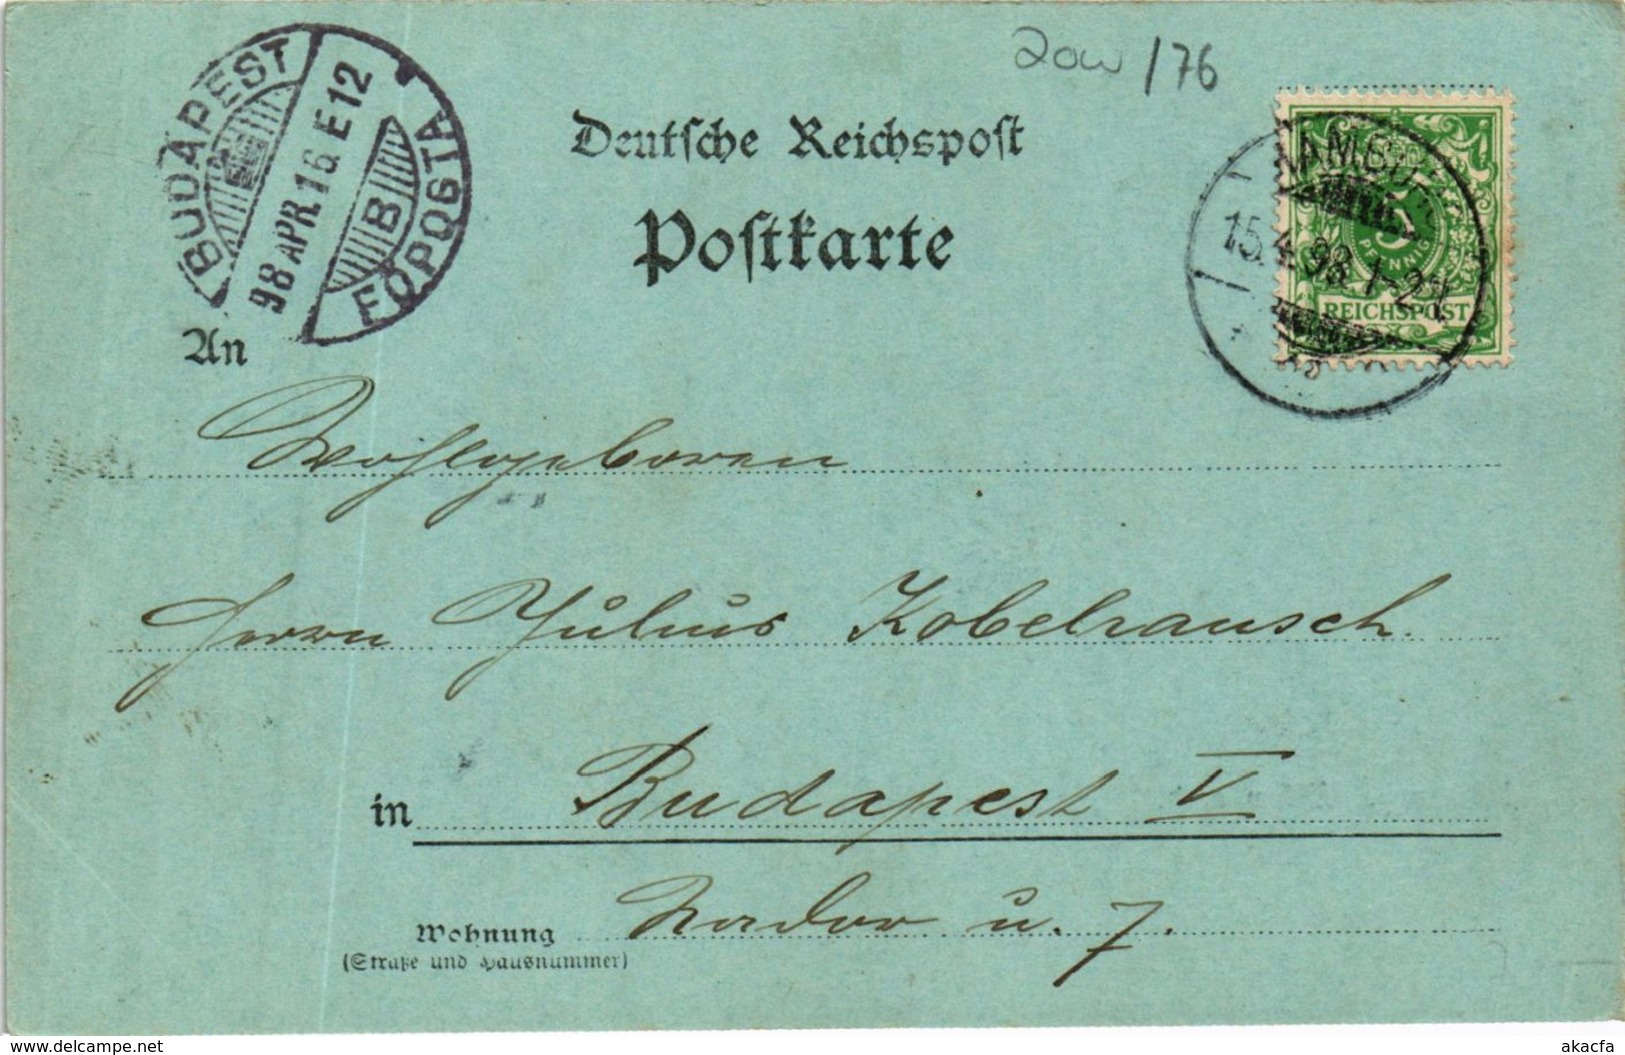 20w /76
BUDAPEST
98 APR.16 E12
B
FŐPOSTA
Deutsche Reichspost
Postkarte
HAMBURG
15.4.98. 1-2N.
5
PFENNIG
REICHSPOST
An
Wohlgeboren
Herrn Julius Kobelrausch.
in Budapest V
Wohnung Nador u. 7.
(Straße und Hausnummer)
www.delcampe.net
akacfa